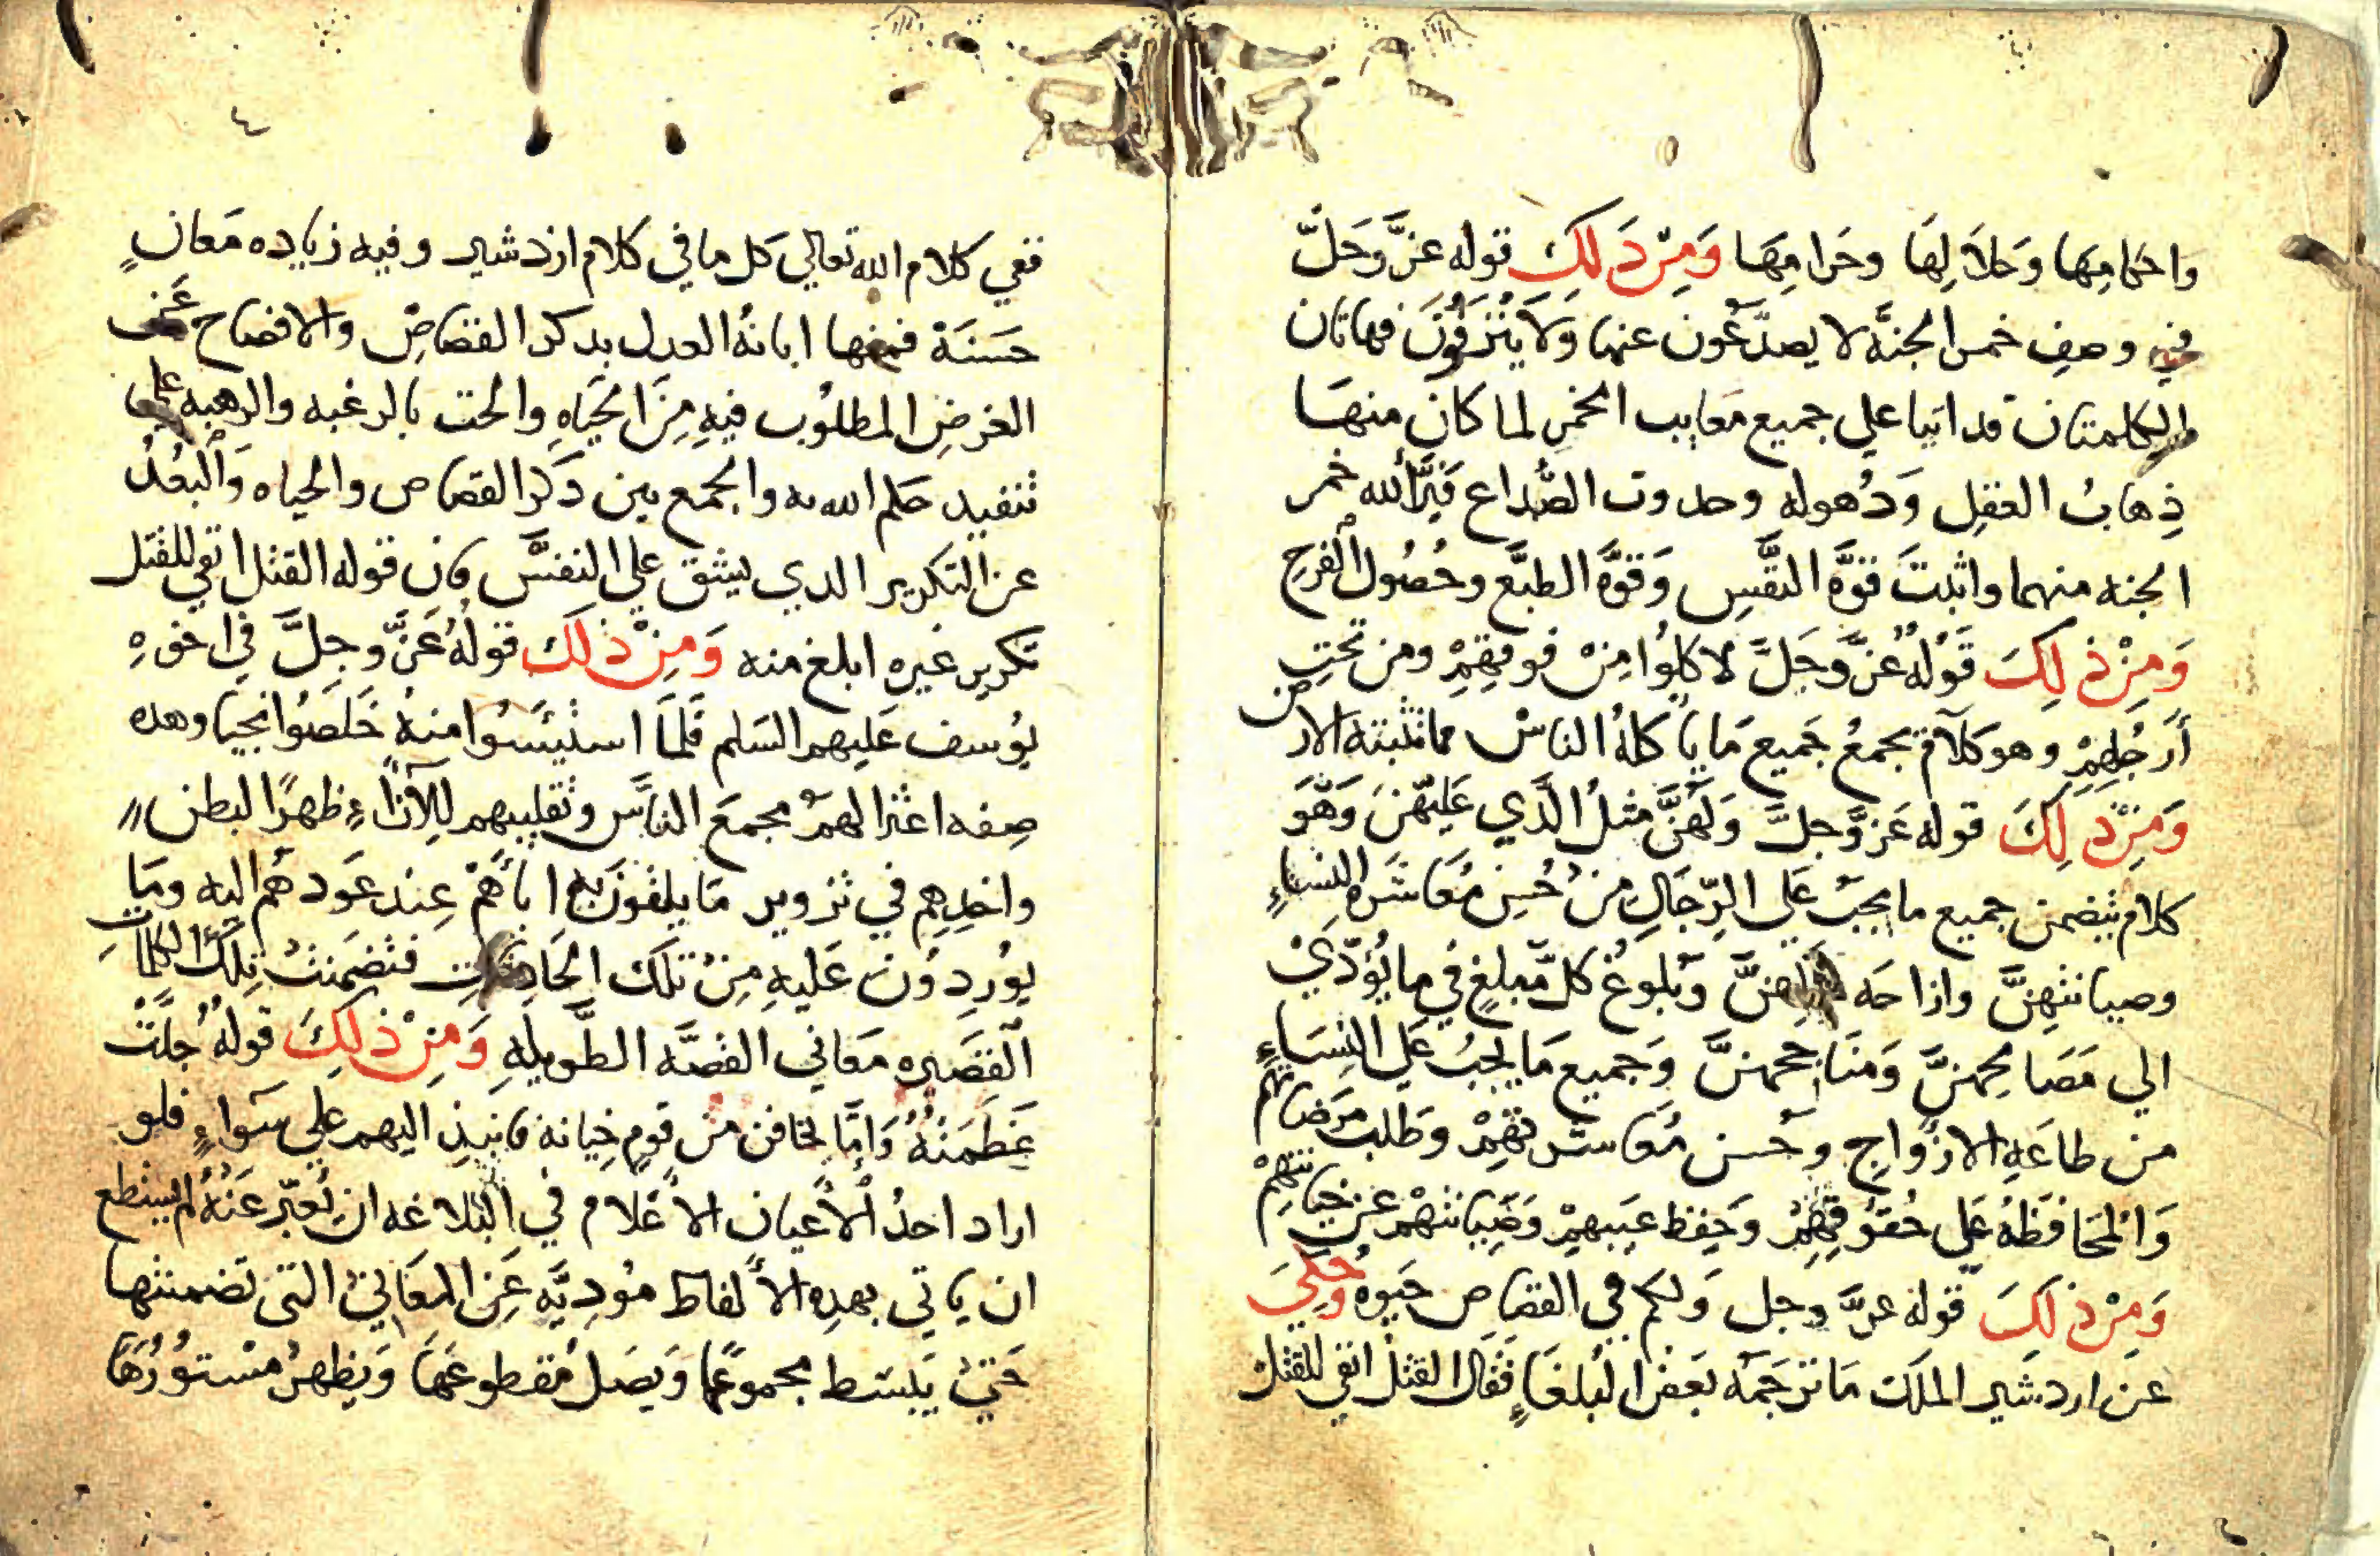 واحكامها وحلالها وحرامها ومن ذلك قوله عز وجل
في وصف خمر الجنة لا يصدعون عنها ولا ينزفون فهاتان
الكلمتان قد اتيا علي جميع معايب الخمر لما كان منها
ذهاب العقل ودهوله وحدوث الصداع فبرأ الله خمر
الجنه منهما واثبت قوة النفس وقوة الطبع وحصول الفرح
ومن ذلك قوله عز وجل لاكلوا من فوقهم ومن تحت
أرجلهم وهو كلام يجمع جميع ما ياكله الناس مما تنبته الارض
ومن ذلك قوله عز وجل ولهن مثل الذي عليهن وهو
كلام يتضمن جميع ما يجب على الرجال من حسن معاشرة النساء
وصيانتهن وازاحه عللهن وبلوغ كل مبلغ في ما يؤدي
الي مصالحهن ومناجحهن وجميع ما يجب على النساء
من طاعه الازواج وحسن معاشرتهم وطلب مرضاتهم
والمحافظه على حقوقهم وحفظ غيبهم وصيانتهم عن خيانتهم
ومن ذلك قوله عز وجل ولكم في القصاص حيوة وحكي
عن اردشير الملك ما ترجمه بعض البلغاء فقال القتل انفي للقتل
٤
ففي كلام الله تعالي كل ما في كلام ازدشير وفيه زياده معان
حسنة فمنها ابانة العدل بدكر القصاص والافصاح عن
الغرض المطلوب فيه من الحياه والحت بالرغبه والرهبه على
تنفيد حكم الله به والجمع بين دكر القصاص والحياه والبعد
عن التكرير الدي يشق على النفس فان قوله القتل انفي للقتل
تكرير غيره ابلغ منه ومن ذلك قوله عز وجل في اخوة
يوسف عليهم السلم فلما استيئسوا منه خلصوا نجيا وهده
صفه اعتزالهم مجمع الناس وتقليبهم للآراء ظهرا لبطن
واخدهم في تزوير ما يلقون به اباهم عند عودهم اليه وما
يوردون عليه من تلك الحادثات فتضمنت تلك الكلمات
القصيره معاني القصه الطويله ومن ذلك قوله جلت
عظمته واما تخافن من قوم خيانة فانبذ اليهم علي سواء فلو
اراد احد الأعيان الأعلام في البلاغه ان يعبر عنه لم يستطع
ان ياتي بهده الألفاظ مؤدية عن المعاني التي تضمنتها
حتي يبسط مجموعها ويصل مقطوعها ويظهر مستورها